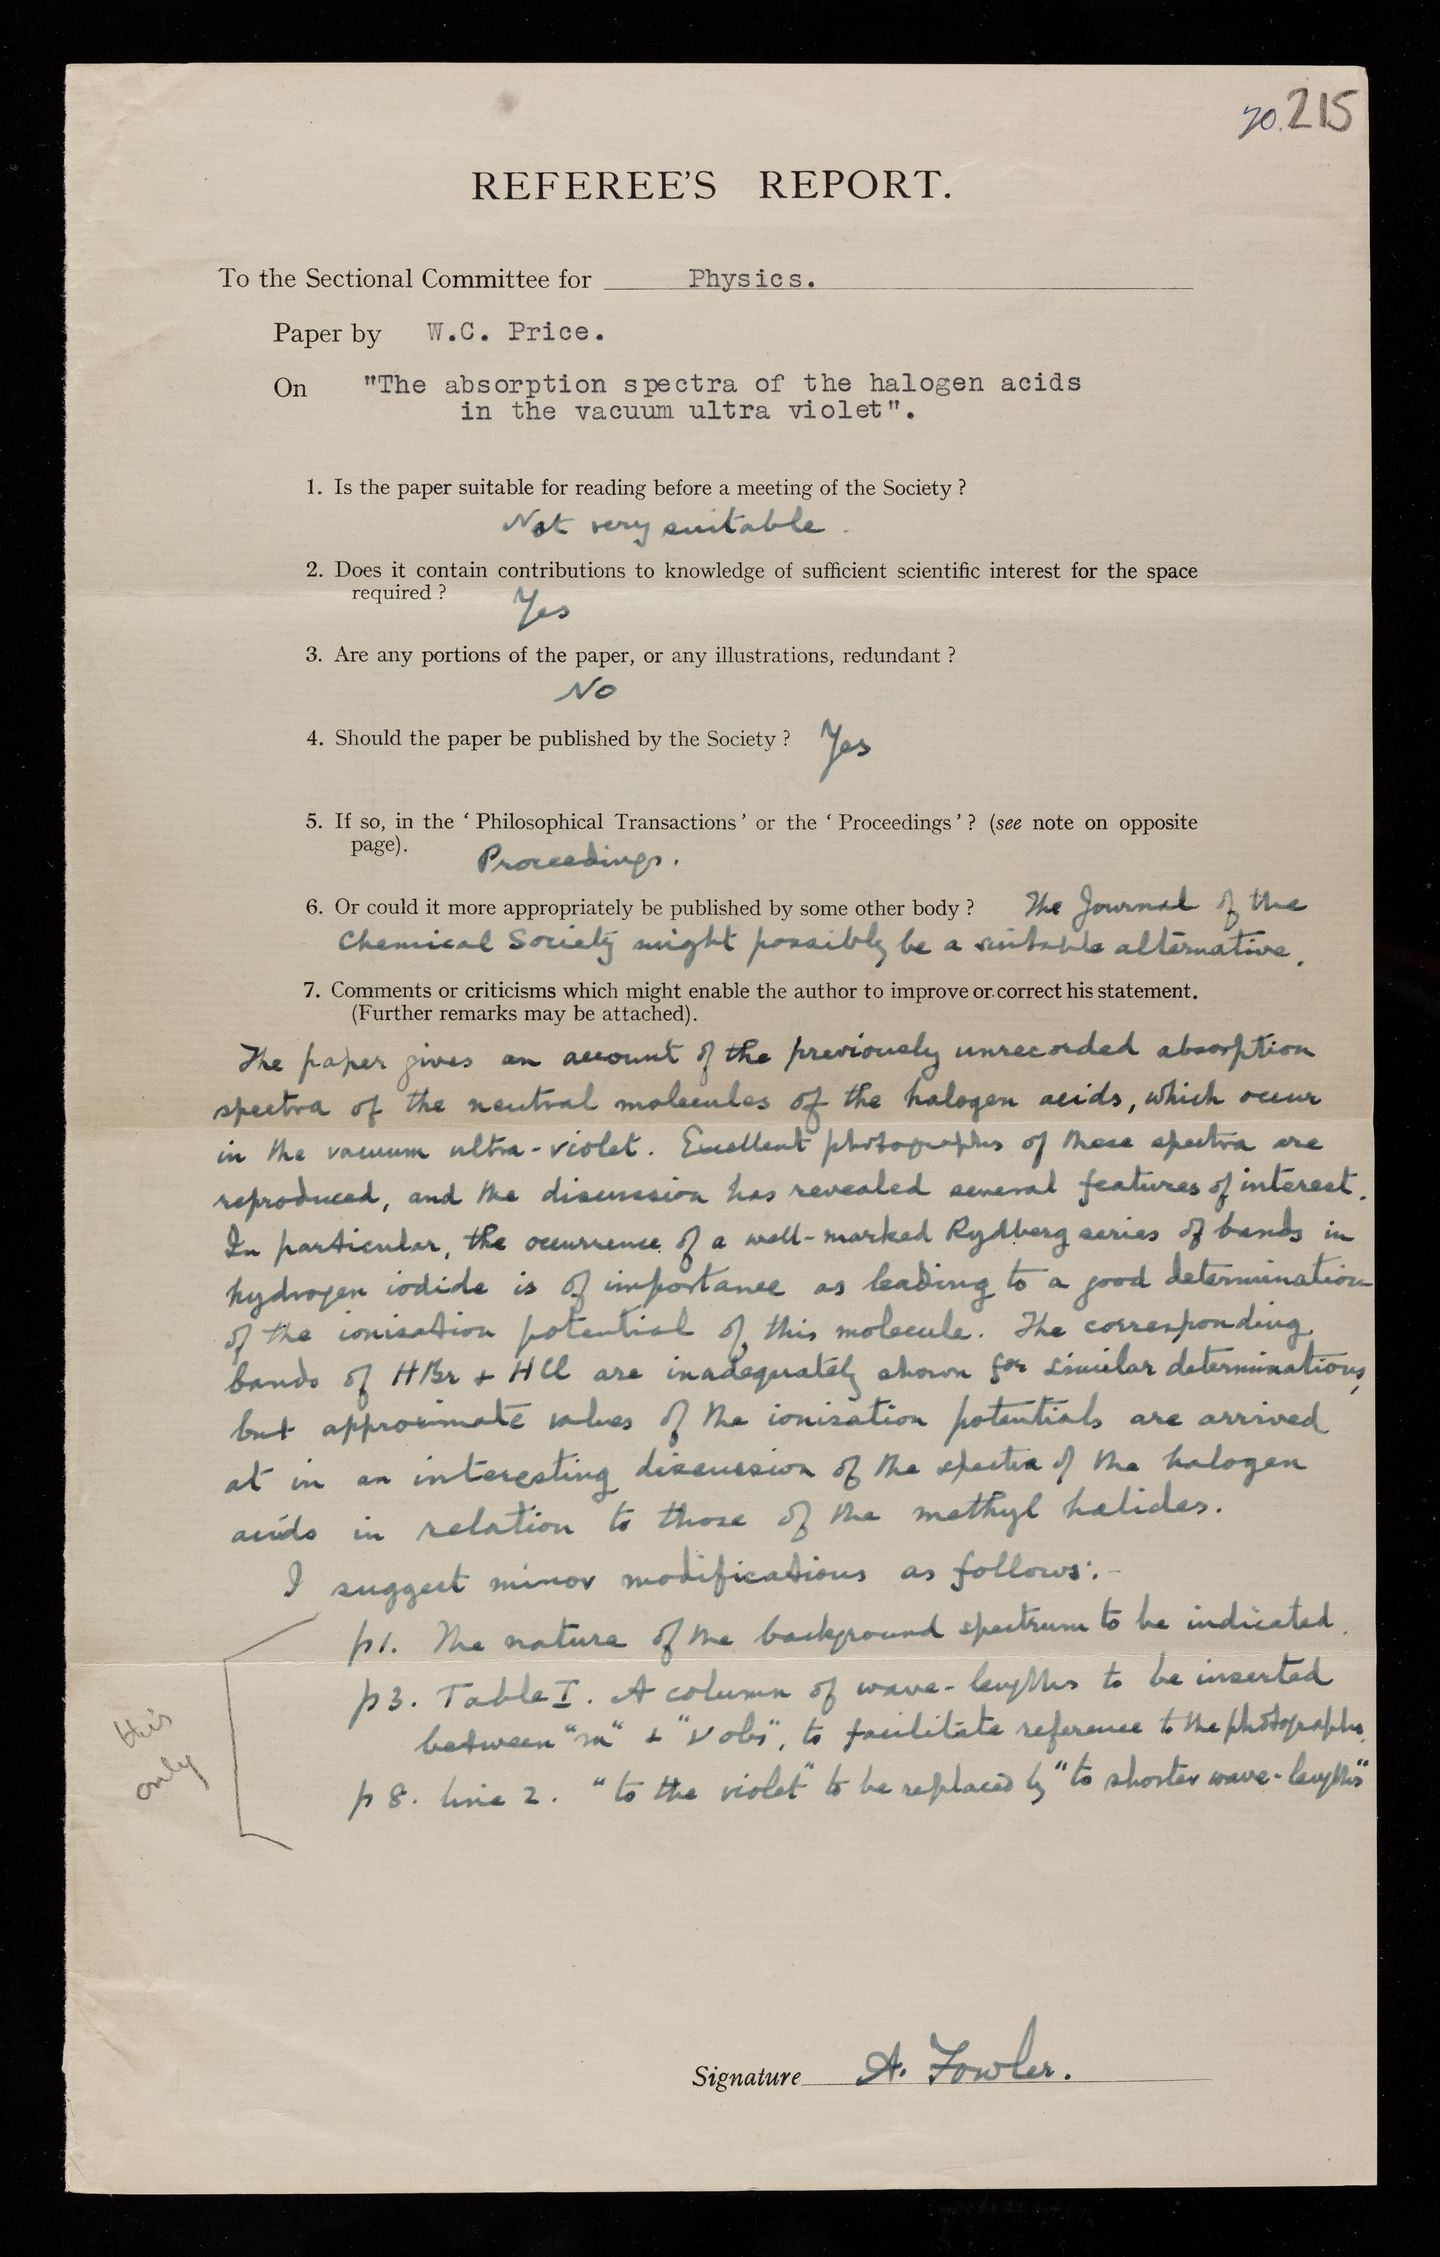 70. 215
REFEREE'S REPORT.
To the Sectional Committee for Physics.
Paper by W.C. Price.
On "The absorption spectra of the halogen acids
in the vacuum ultra violet".
1. Is the paper suitable for reading before a meeting of the Society ?
Not very suitable.
2. Does it contain contributions to knowledge of sufficient scientific interest for the space
required ?
Yes
3. Are any portions of the paper, or any illustrations, redundant ?
No
4. Should the paper be published by the Society ? Yes
5. If so, in the ‘ Philosophical Transactions ’ or the ‘ Proceedings ’ ? (see note on opposite
page).
Proceedings.
6. Or could it more appropriately be published by some other body ? The Journal of the
Chemical Society might possibly be a suitable alternative.
7. Comments or criticisms which might enable the author to improve or correct his statement.
(Further remarks may be attached).
The paper gives an account of the previously unrecorded absorption
spectra of the neutral molecules of the halogen acids, which occur
in the vacuum ultra-violet. Excellent photographs of these spectra are
reproduced, and the discussion has revealed several features of interest.
In particular, the occurrence of a well-marked Rydberg series of bands in
hydrogen iodide is of importance as leading to a good determination
of the ionisation potential of this molecule. The corresponding
bands of HBr & HCl are inadequately shown for similar determinations,
but approximate values of the ionisation potentials are arrived
at in an interesting discussion of the spectra of the halogen
acids in relation to those of the methyl halides.
I suggest minor modifications as follows:-
p1. The nature of the background spectrum to be indicated.
p3. Table I. A column of wave-lengths to be inserted
between "m" & "ν obs", to facilitate reference to the photographs.
p 8. line 2. "to the violet" to be replaced by "to shorter wave-lengths"
this
only
Signature A. Fowler.